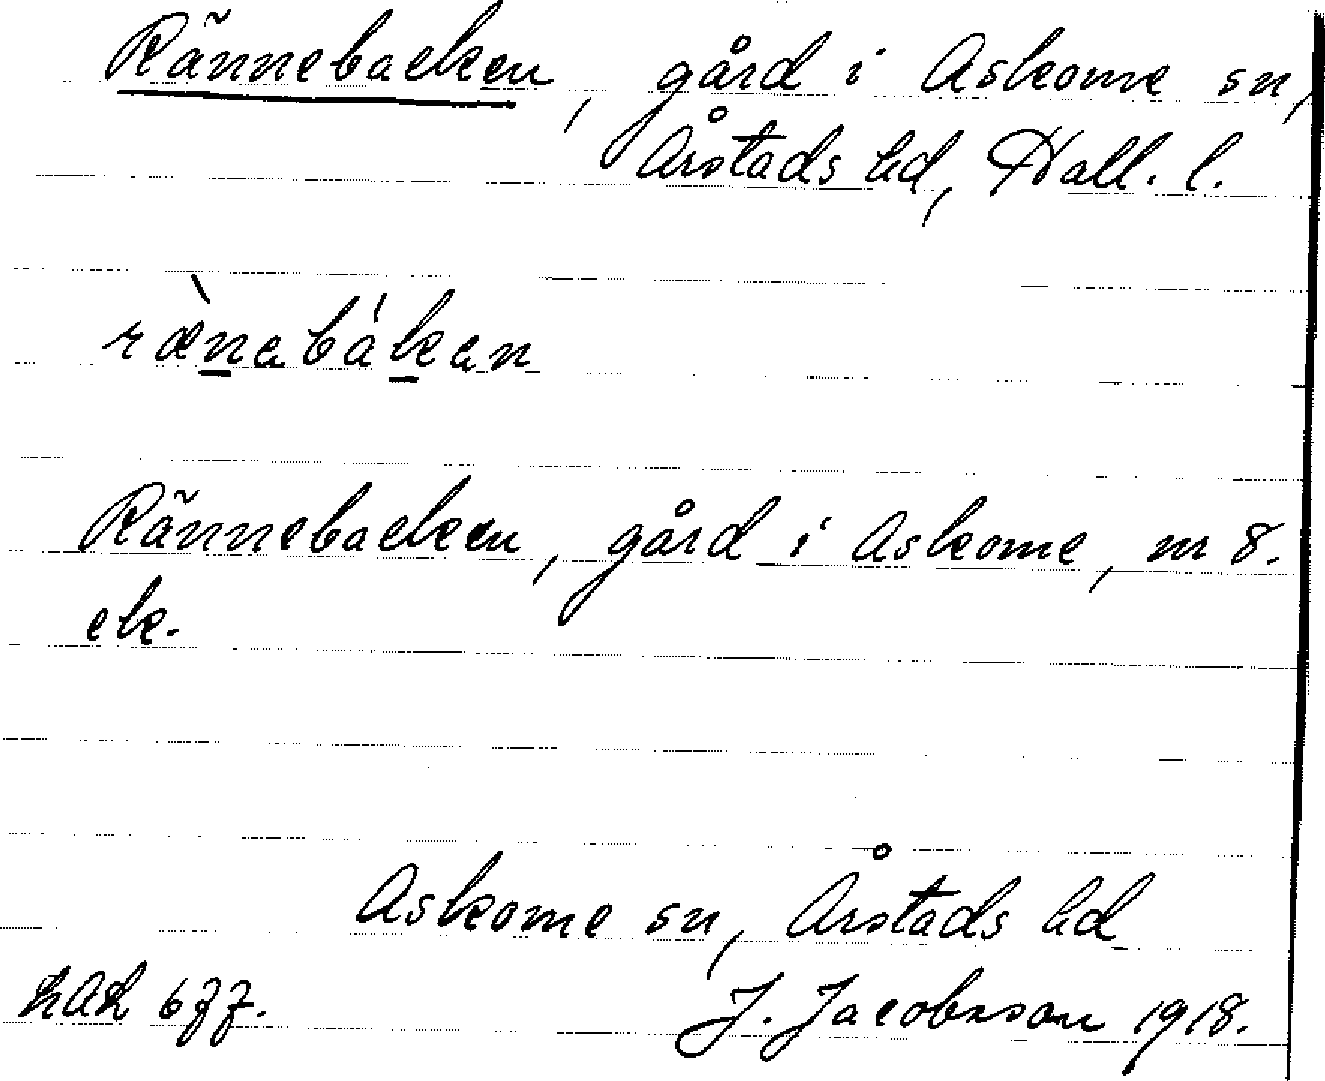 Rännebacken, gård i Askome sn,
Årstads hd, Hall. l.
ræ̀nabákan
Rännebacken, gård i Askome, nr 8.
ek.
Askome sn, Årstads hd
J. Jacobsson 1918.